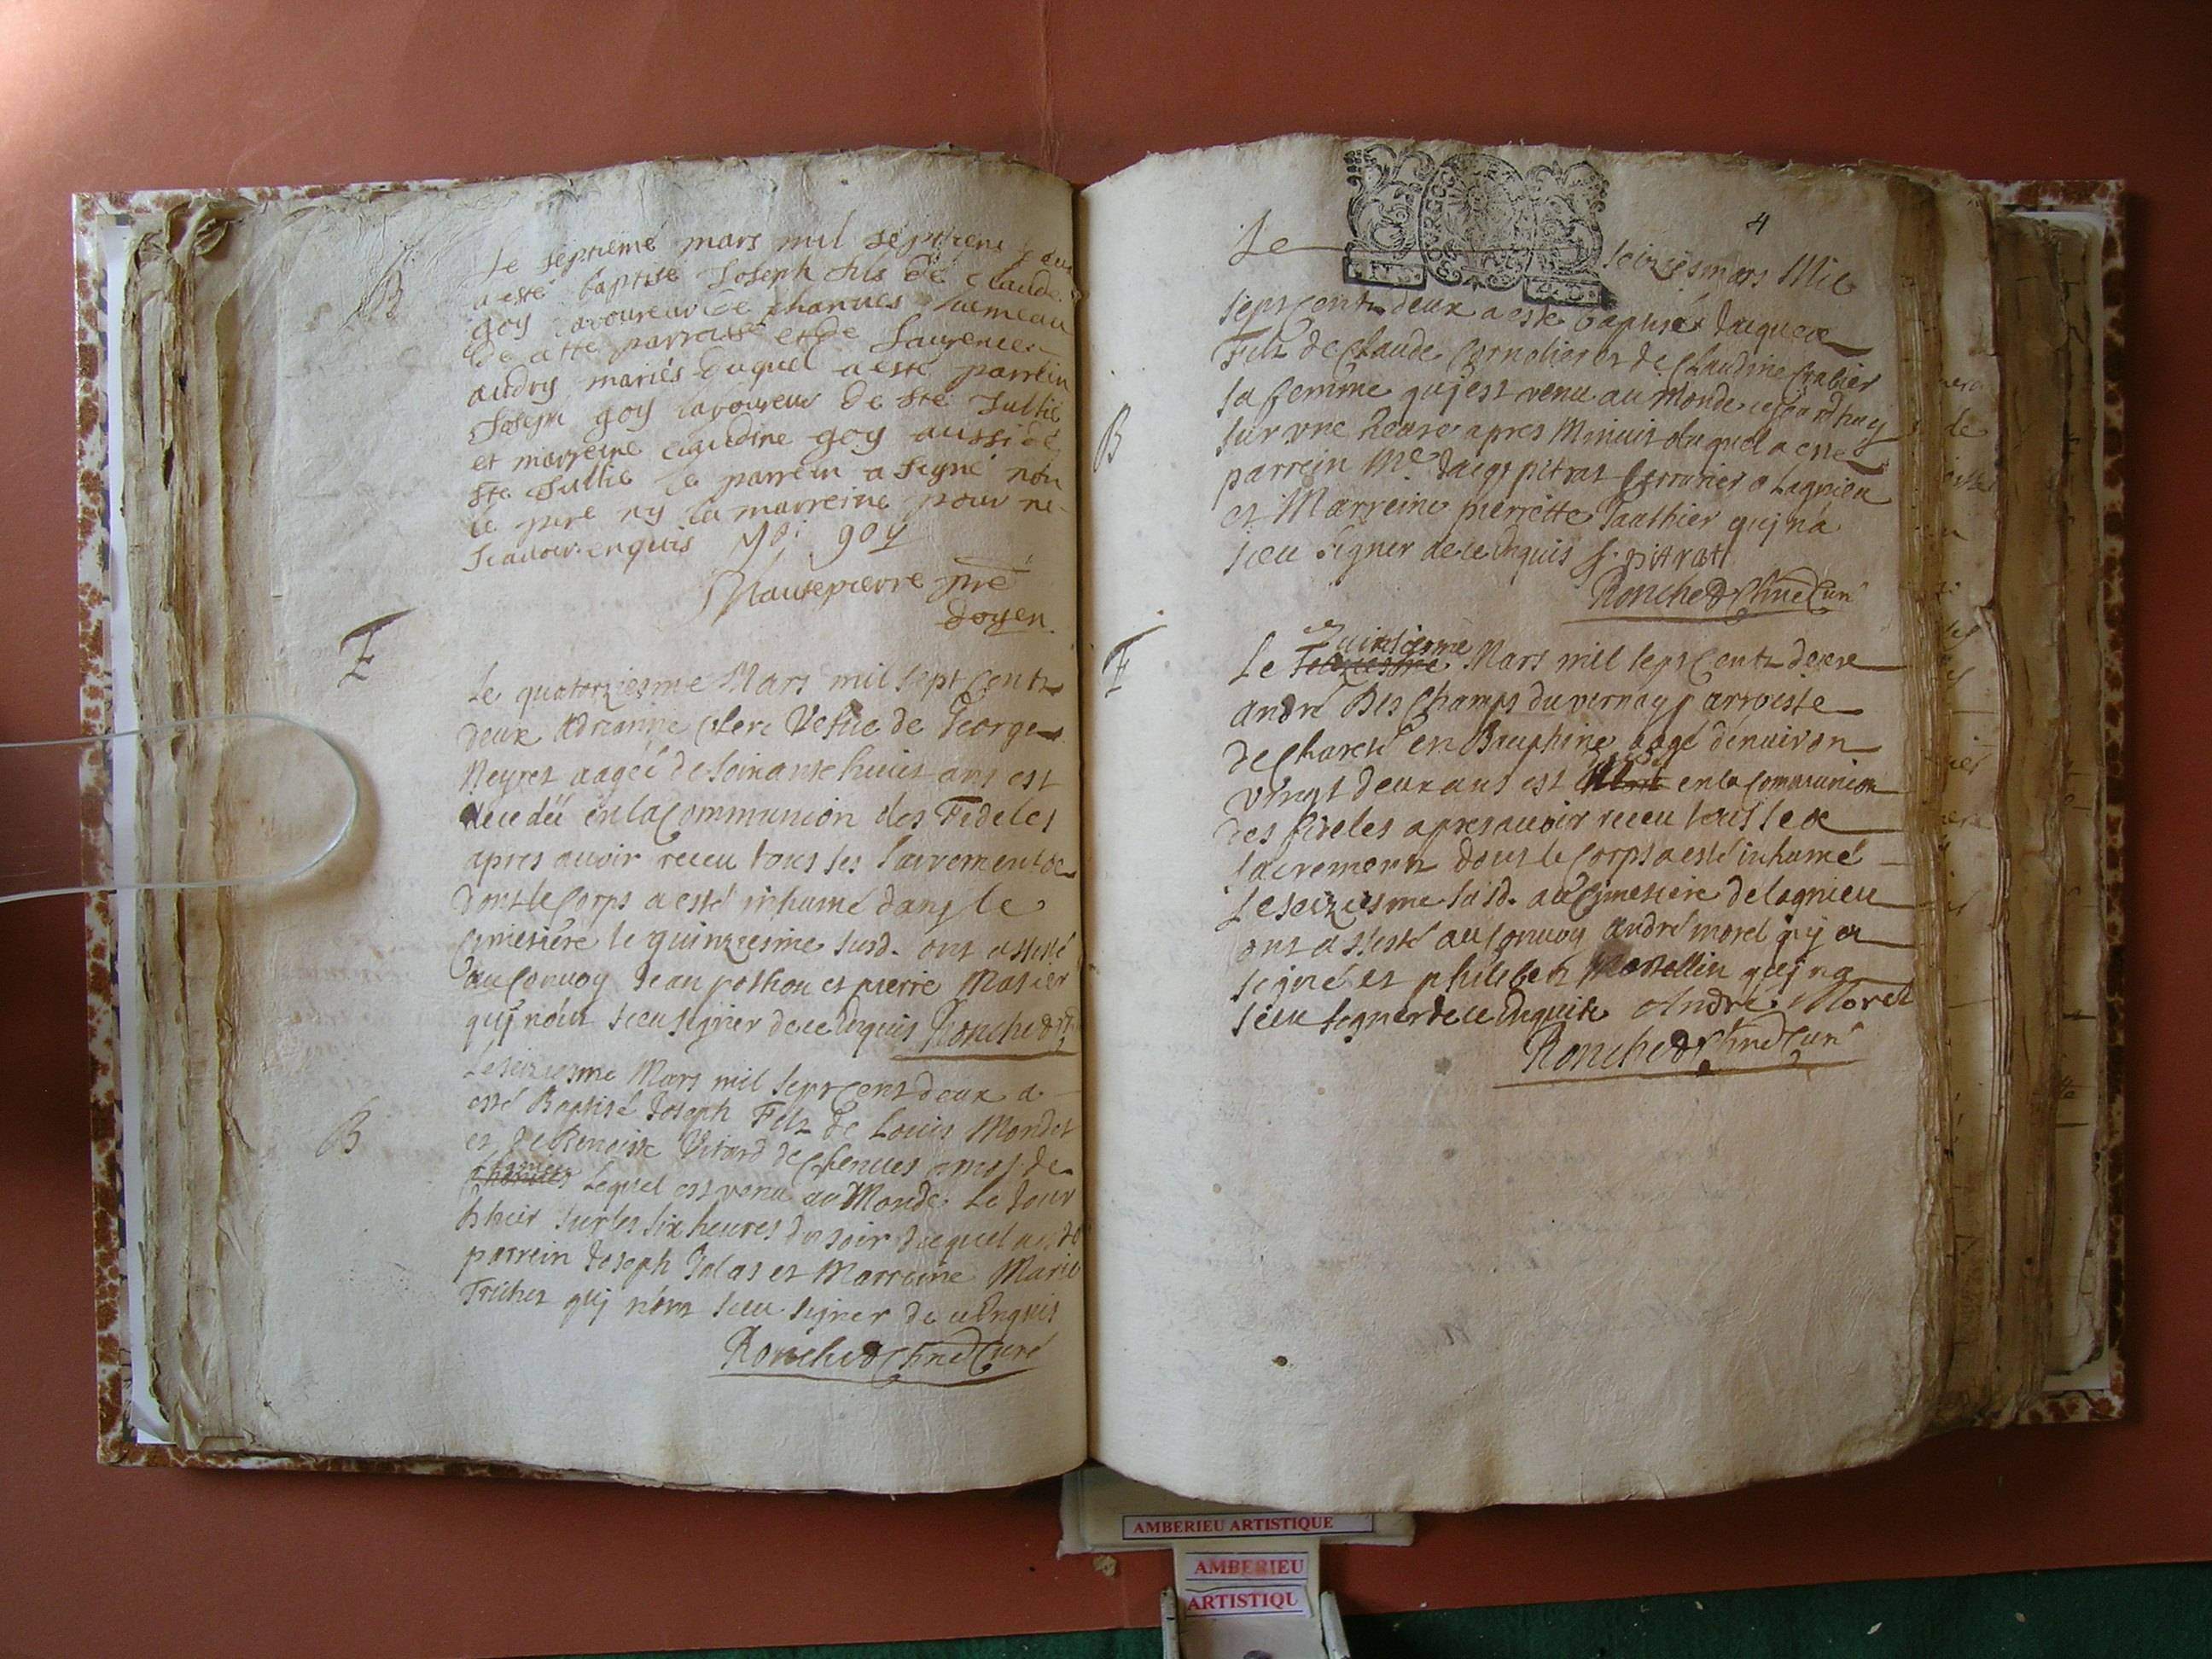 B
Le septieme mars mil sept cent deux
a esté baptisé Joseph fils de Claude
goy laboureur de charnues hameau
de cette parroisse et de Laurence
audry mariés duquel a esté parrein
Joseph goy laboureur de Ste Jullie
et marreine claudine goy aussi de
Ste Jullie le parrein a signé non
le pere ny la marreine pour ne
scavoir enquis Jo: goy
Hautepierre pre
doyen
E
Le quatorziesme Mars mil sept Cents
deux Adrianne Clerc Vefue de George
Neyret aagée de soixante huit ans est
decedée en la Communion des Fideles
apres auoir receu tous ses sacrements
dont le Corps a esté inhumé dans le
Cimetiére le quinziesme susd. ont assisté
au Convoy Jean pothon et pierre Masier
quj n'ont sceu signer de ce Enquis Ronchet
B
Le seiziesme Mars mil sept Cent deux a
esté Baptisé Joseph Filz de Louis Mondet
et de Benoiste Vitard de
Lequel est venu au Monde Le Jour
d'hier sur les six heures du soir duquel a esté
parrein Joseph Jolas et Marreine Marie
Trichet quj n'ont sceu signer de ce Enquis
Ronchet Curé
4
Le seizies mars Mil
sept Cents deux a esté baptisé Jacques
Filz de Claude Cornolier et de Claudine Crabier
sa femme quj est venu au Monde ce jourdhuy
B
sur vne heure apres Minuit duquel a esté
parrein Me Jacqs pitrat serrurier a Lagnieu
et Marreine pierrette Janthier quj n'a
sceu signer de ce Enquis J. pitrat
Ronchet Curé
E
quinsiesme
Le Seiziesme Mars mil sept Cents deux
André Des Champs du vernay parroisse
de Charete en Dauphine aagé d'enuiron
vingt deux ans est en la Communion
des fideles apres auoir receu tous ses
sacrements dont le Corps a esté inhumé
Le seiziesme susd. au Cimetiere de lagnieu
ont assisté au Conuoy André morel quj a
signé et philibert Martellin quj na
sceu signer de ce Enquis André Morel
Ronchet Curé
AMBERIEU ARTISTIQUE
AMBERIEU
ARTISTIQU